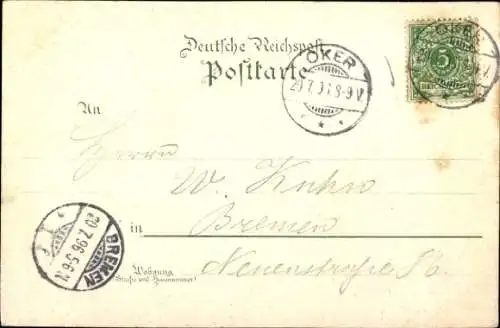 Deutsche Reichspost
Postkarte
OKER
20.7.9 8-9V.
OKER
5
An
Herrn
W. Kuhn
in Bremen
Wohnung
(Straße und Hausnummer)
Neuenstraße
BREMEN
20.7.96.5-6N